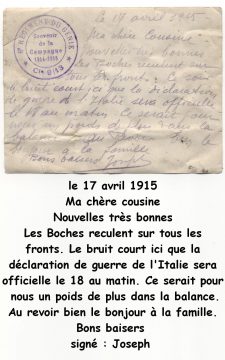 Le 17 avril 1915
Ma chère Cousine
Nouvelles très bonnes
Les Boches reculent sur
tous les fronts. Ce soir
le bruit court ici que la déclaration
de guerre de l'Italie sera officielle
le 18 au matin. Ce serait pour
nous un poids de plus dans la
balance. Au revoir bien le
bonjour à la famille
Bons baisers Joseph
RÉGIMENT DU GÉNIE
Souvenir
de la
Campagne
1914-1915
le 17 avril 1915
Ma chère cousine
Nouvelles très bonnes
Les Boches reculent sur tous les
fronts. Le bruit court ici que la
déclaration de guerre de l'Italie sera
officielle le 18 au matin. Ce serait pour
nous un poids de plus dans la balance.
Au revoir bien le bonjour à la famille.
Bons baisers
signé : Joseph